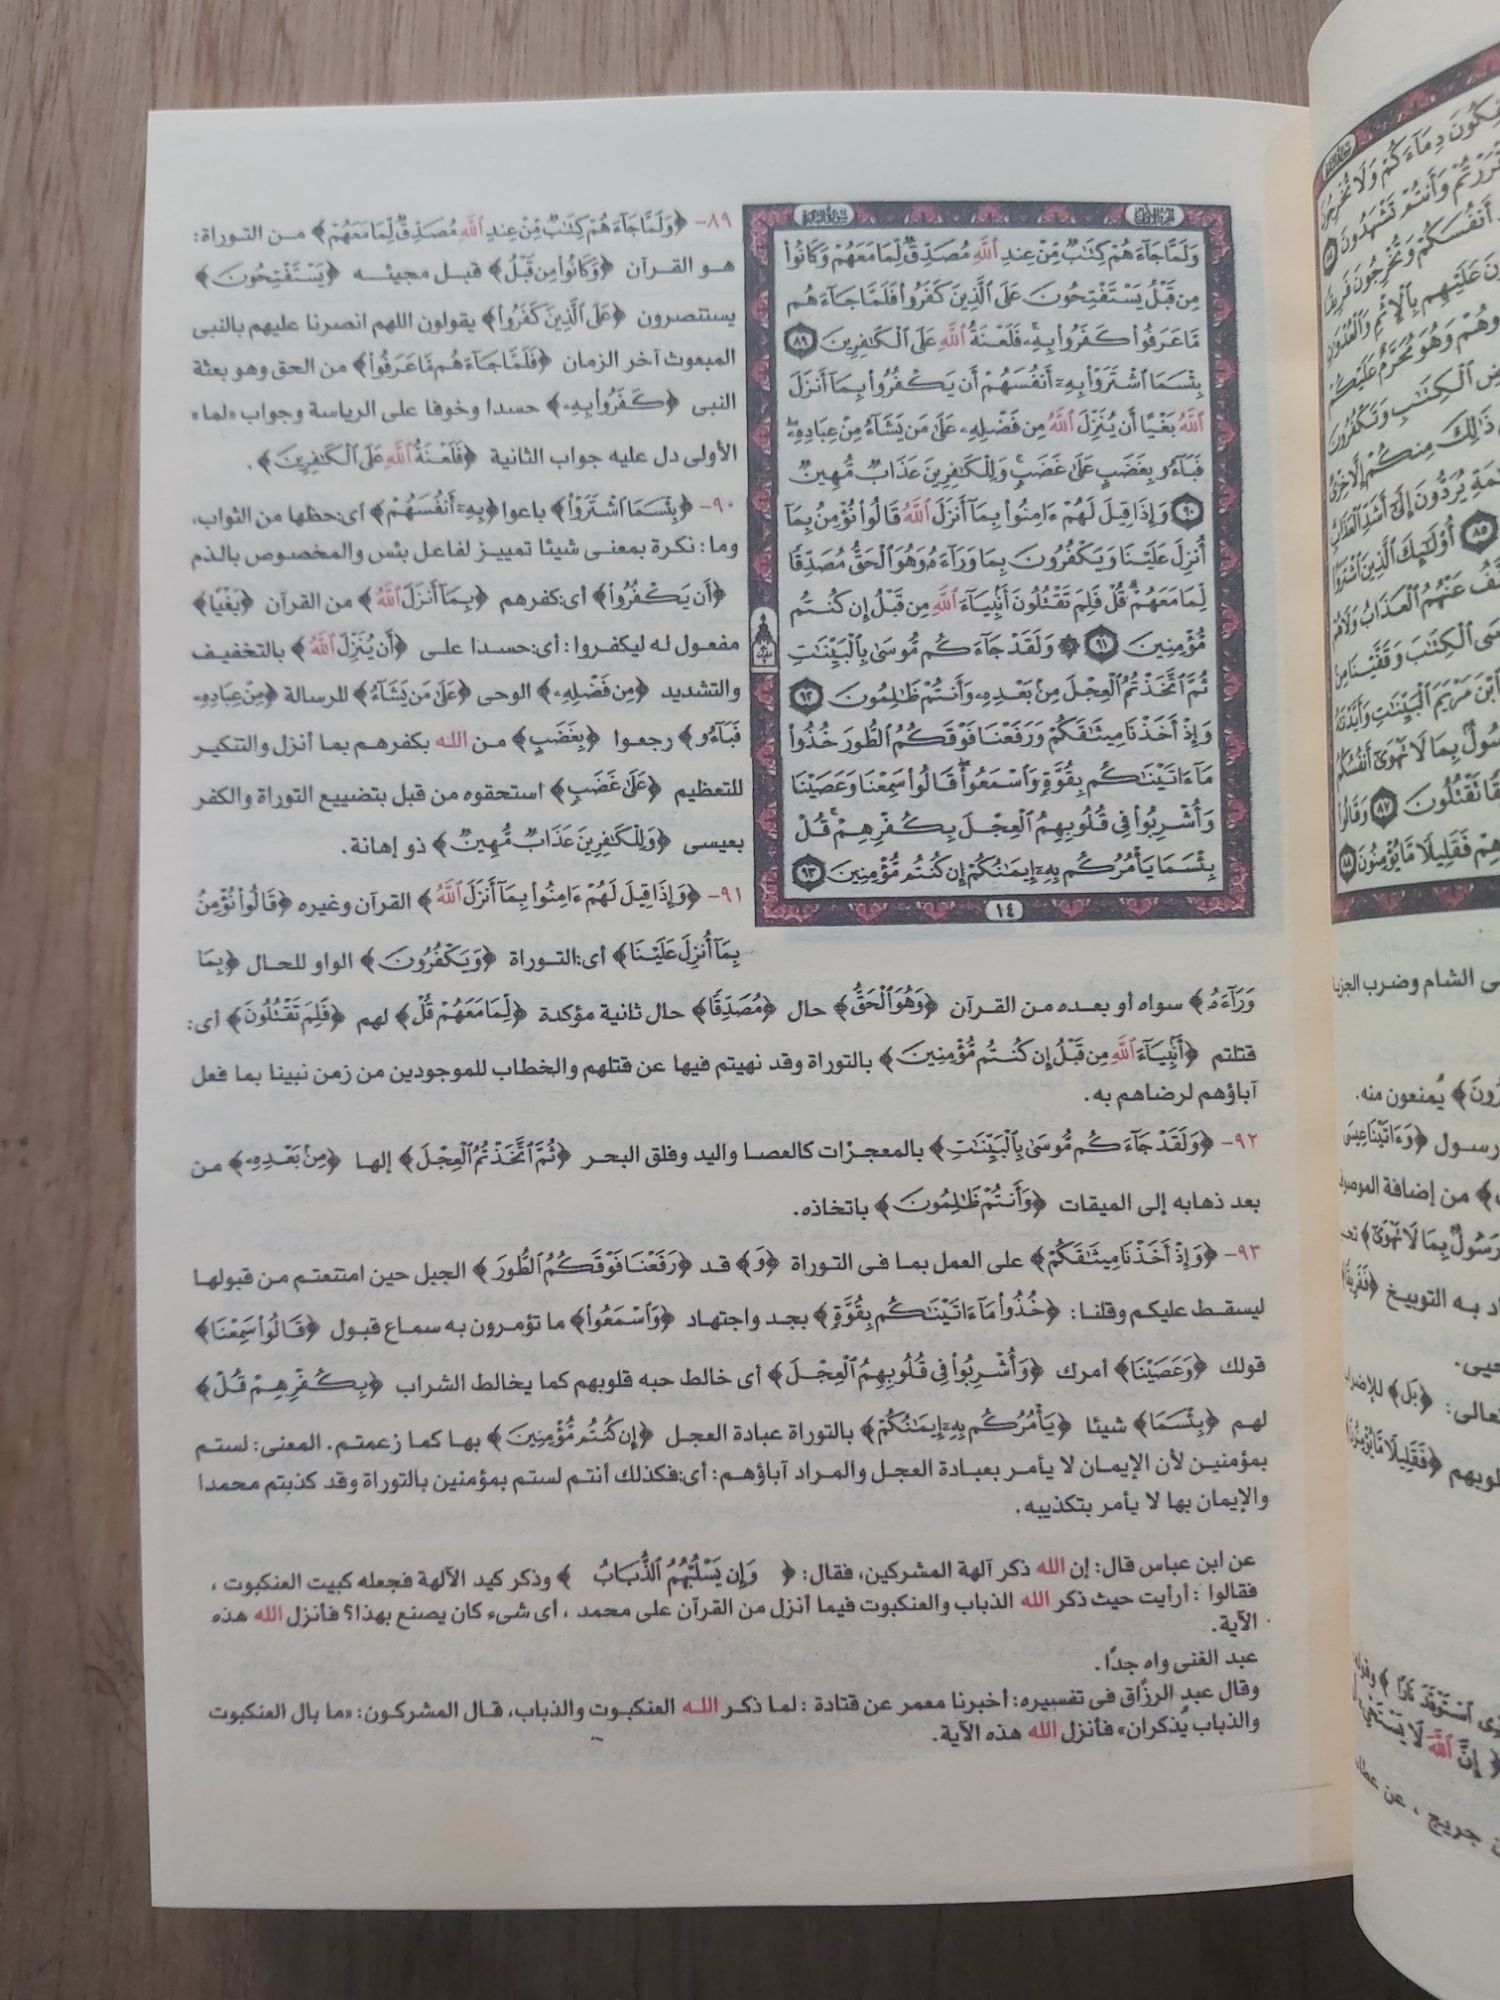 الجزء الأول
سورة البقرة
وَلَمَّا جَاءَهُمْ كِتَٰبٌ مِّنْ عِندِ ٱللَّهِ مُصَدِّقٌ لِّمَا مَعَهُمْ وَكَانُوا۟
مِن قَبْلُ يَسْتَفْتِحُونَ عَلَى ٱلَّذِينَ كَفَرُوا۟ فَلَمَّا جَاءَهُم
مَّا عَرَفُوا۟ كَفَرُوا۟ بِهِۦ فَلَعْنَةُ ٱللَّهِ عَلَى ٱلْكَٰفِرِينَ ٨٩
بِئْسَمَا ٱشْتَرَوْا۟ بِهِۦٓ أَنفُسَهُمْ أَن يَكْفُرُوا۟ بِمَآ أَنزَلَ
ٱللَّهُ بَغْيًا أَن يُنَزِّلَ ٱللَّهُ مِن فَضْلِهِۦ عَلَىٰ مَن يَشَآءُ مِنْ عِبَادِهِۦ
فَبَآءُو بِغَضَبٍ عَلَىٰ غَضَبٍ وَلِلْكَٰفِرِينَ عَذَابٌ مُّهِينٌ
٩٠ وَإِذَا قِيلَ لَهُمْ ءَامِنُوا۟ بِمَآ أَنزَلَ ٱللَّهُ قَالُوا۟ نُؤْمِنُ بِمَآ
أُنزِلَ عَلَيْنَا وَيَكْفُرُونَ بِمَا وَرَآءَهُۥ وَهُوَ ٱلْحَقُّ مُصَدِّقًا
لِّمَا مَعَهُمْ قُلْ فَلِمَ تَقْتُلُونَ أَنۢبِيَآءَ ٱللَّهِ مِن قَبْلُ إِن كُنتُم
مُّؤْمِنِينَ ٩١ ۞ وَلَقَدْ جَآءَكُم مُّوسَىٰ بِٱلْبَيِّنَٰتِ
ثُمَّ ٱتَّخَذْتُمُ ٱلْعِجْلَ مِنۢ بَعْدِهِۦ وَأَنتُمْ ظَٰلِمُونَ ٩٢
وَإِذْ أَخَذْنَا مِيثَٰقَكُمْ وَرَفَعْنَا فَوْقَكُمُ ٱلطُّورَ خُذُوا۟
مَآ ءَاتَيْنَٰكُم بِقُوَّةٍ وَٱسْمَعُوا۟ قَالُوا۟ سَمِعْنَا وَعَصَيْنَا
وَأُشْرِبُوا۟ فِى قُلُوبِهِمُ ٱلْعِجْلَ بِكُفْرِهِمْ قُلْ
بِئْسَمَا يَأْمُرُكُم بِهِۦٓ إِيمَٰنُكُمْ إِن كُنتُم مُّؤْمِنِينَ ٩٣
١٤
٨٩- ﴿وَلَمَّا جَآءَهُمْ كِتَٰبٌ مِّنْ عِندِ ٱللَّهِ مُصَدِّقٌ لِّمَا مَعَهُمْ﴾ من التوراة:
هو القرآن ﴿وَكَانُوا۟ مِن قَبْلُ﴾ قبل مجيئه ﴿يَسْتَفْتِحُونَ﴾
يستنصرون ﴿عَلَى ٱلَّذِينَ كَفَرُوا۟﴾ يقولون اللهم انصرنا عليهم بالنبى
المبعوث آخر الزمان ﴿فَلَمَّا جَآءَهُم مَّا عَرَفُوا۟﴾ من الحق وهو بعثة
النبى ﴿كَفَرُوا۟ بِهِۦ﴾ حسدا وخوفا على الرياسة وجواب «لما»
الأولى دل عليه جواب الثانية ﴿فَلَعْنَةُ ٱللَّهِ عَلَى ٱلْكَٰفِرِينَ﴾.
٩٠- ﴿بِئْسَمَا ٱشْتَرَوْا۟﴾ باعوا ﴿بِهِۦٓ أَنفُسَهُمْ﴾ أى:حظها من الثواب،
وما: نكرة بمعنى شيئا تمييز لفاعل بئس والمخصوص بالذم
﴿أَن يَكْفُرُوا۟﴾ أى:كفرهم ﴿بِمَآ أَنزَلَ ٱللَّهُ﴾ من القرآن ﴿بَغْيًا﴾
مفعول له ليكفروا: أى:حسدا على ﴿أَن يُنَزِّلَ ٱللَّهُ﴾ بالتخفيف
والتشديد ﴿مِن فَضْلِهِۦ﴾ الوحى ﴿عَلَىٰ مَن يَشَآءُ﴾ للرسالة ﴿مِنْ عِبَادِهِۦ
فَبَآءُو﴾ رجعوا ﴿بِغَضَبٍ﴾ من الله بكفرهم بما أنزل والتنكير
للتعظيم ﴿عَلَىٰ غَضَبٍ﴾ استحقوه من قبل بتضييع التوراة والكفر
بعيسى ﴿وَلِلْكَٰفِرِينَ عَذَابٌ مُّهِينٌ﴾ ذو إهانة.
٩١- ﴿وَإِذَا قِيلَ لَهُمْ ءَامِنُوا۟ بِمَآ أَنزَلَ ٱللَّهُ﴾ القرآن وغيره ﴿قَالُوا۟ نُؤْمِنُ
بِمَآ أُنزِلَ عَلَيْنَا﴾ أى:التوراة ﴿وَيَكْفُرُونَ﴾ الواو للحال ﴿بِمَا
وَرَآءَهُۥ﴾ سواه أو بعده من القرآن ﴿وَهُوَ ٱلْحَقُّ﴾ حال ﴿مُصَدِّقًا﴾ حال ثانية مؤكدة ﴿لِّمَا مَعَهُمْ قُلْ﴾ لهم ﴿فَلِمَ تَقْتُلُونَ﴾ أى:
قتلتم ﴿أَنۢبِيَآءَ ٱللَّهِ مِن قَبْلُ إِن كُنتُم مُّؤْمِنِينَ﴾ بالتوراة وقد نهيتم فيها عن قتلهم والخطاب للموجودين من زمن نبينا بما فعل
آباؤهم لرضاهم به.
٩٢- ﴿وَلَقَدْ جَآءَكُم مُّوسَىٰ بِٱلْبَيِّنَٰتِ﴾ بالمعجزات كالعصا واليد وفلق البحر ﴿ثُمَّ ٱتَّخَذْتُمُ ٱلْعِجْلَ﴾ إلها ﴿مِنۢ بَعْدِهِۦ﴾ من
بعد ذهابه إلى الميقات ﴿وَأَنتُمْ ظَٰلِمُونَ﴾ باتخاذه.
٩٣- ﴿وَإِذْ أَخَذْنَا مِيثَٰقَكُمْ﴾ على العمل بما فى التوراة ﴿وَ﴾ قد ﴿رَفَعْنَا فَوْقَكُمُ ٱلطُّورَ﴾ الجبل حين امتنعتم من قبولها
ليسقط عليكم وقلنا: ﴿خُذُوا۟ مَآ ءَاتَيْنَٰكُم بِقُوَّةٍ﴾ بجد واجتهاد ﴿وَٱسْمَعُوا۟﴾ ما تؤمرون به سماع قبول ﴿قَالُوا۟ سَمِعْنَا﴾
قولك ﴿وَعَصَيْنَا﴾ أمرك ﴿وَأُشْرِبُوا۟ فِى قُلُوبِهِمُ ٱلْعِجْلَ﴾ أى خالط حبه قلوبهم كما يخالط الشراب ﴿بِكُفْرِهِمْ قُلْ﴾
لهم ﴿بِئْسَمَا﴾ شيئا ﴿يَأْمُرُكُم بِهِۦٓ إِيمَٰنُكُمْ﴾ بالتوراة عبادة العجل ﴿إِن كُنتُم مُّؤْمِنِينَ﴾ بها كما زعمتم. المعنى: لستم
بمؤمنين لأن الإيمان لا يأمر بعبادة العجل والمراد آباؤهم: أى:فكذلك أنتم لستم بمؤمنين بالتوراة وقد كذبتم محمدا
والإيمان بها لا يأمر بتكذيبه.
عن ابن عباس قال: إن الله ذكر آلهة المشركين، فقال: ﴿ وَإِن يَسْلُبْهُمُ ٱلذُّبَابُ ﴾ وذكر كيد الآلهة فجعله كبيت العنكبوت ،
فقالوا : أرأيت حيث ذكر الله الذباب والعنكبوت فيما أنزل من القرآن على محمد ، أى شىء كان يصنع بهذا؟ فأنزل الله هذه
الآية.
عبد الغنى واه جدًا.
وقال عبد الرزاق فى تفسيره: أخبرنا معمر عن قتادة : لما ذكر الله العنكبوت والذباب، قال المشركون: «ما بال العنكبوت
والذباب يُذكران» فأنزل الله هذه الآية.